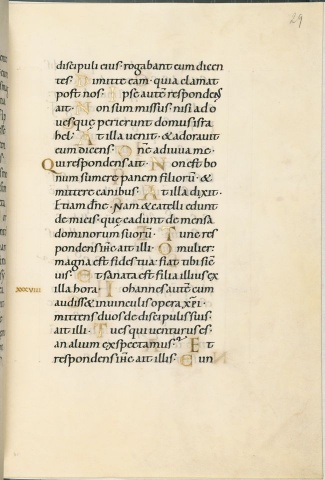 29
discipuli eius rogabant eum dicen
tes · Dimitte eam · quia clamat
post nos · Ipse autẽ respondens
ait · Non sum missus · nisi ad o
ues quẹ perierunt domus isra
hel · At illa uenit · & adorauit
eum dicens · Dñe adiuua me ·
Qui respondens ait · Non est bo
num sumere panem filiorũ · &
mittere canibus · At illa dixit ·
Etiam dñe · Nam & catelli edunt
de micis · quẹ cadunt de mensa
dominorum suorũ · Tunc res
pondens ihc̃ ait illi · O mulier ·
magna est fides tua · fiat tibi sic
uis · Et sanata est filia illius ex
XXXVIII illa hora · Iohannes autẽ cum
audiss& in uinculis opera xp̃i ·
mittens duos de discipulis suis ·
ait illi · Tu es qui uenturus es ·
an alium expectamus · Et
respondens ihc̃ ait illis · Eun